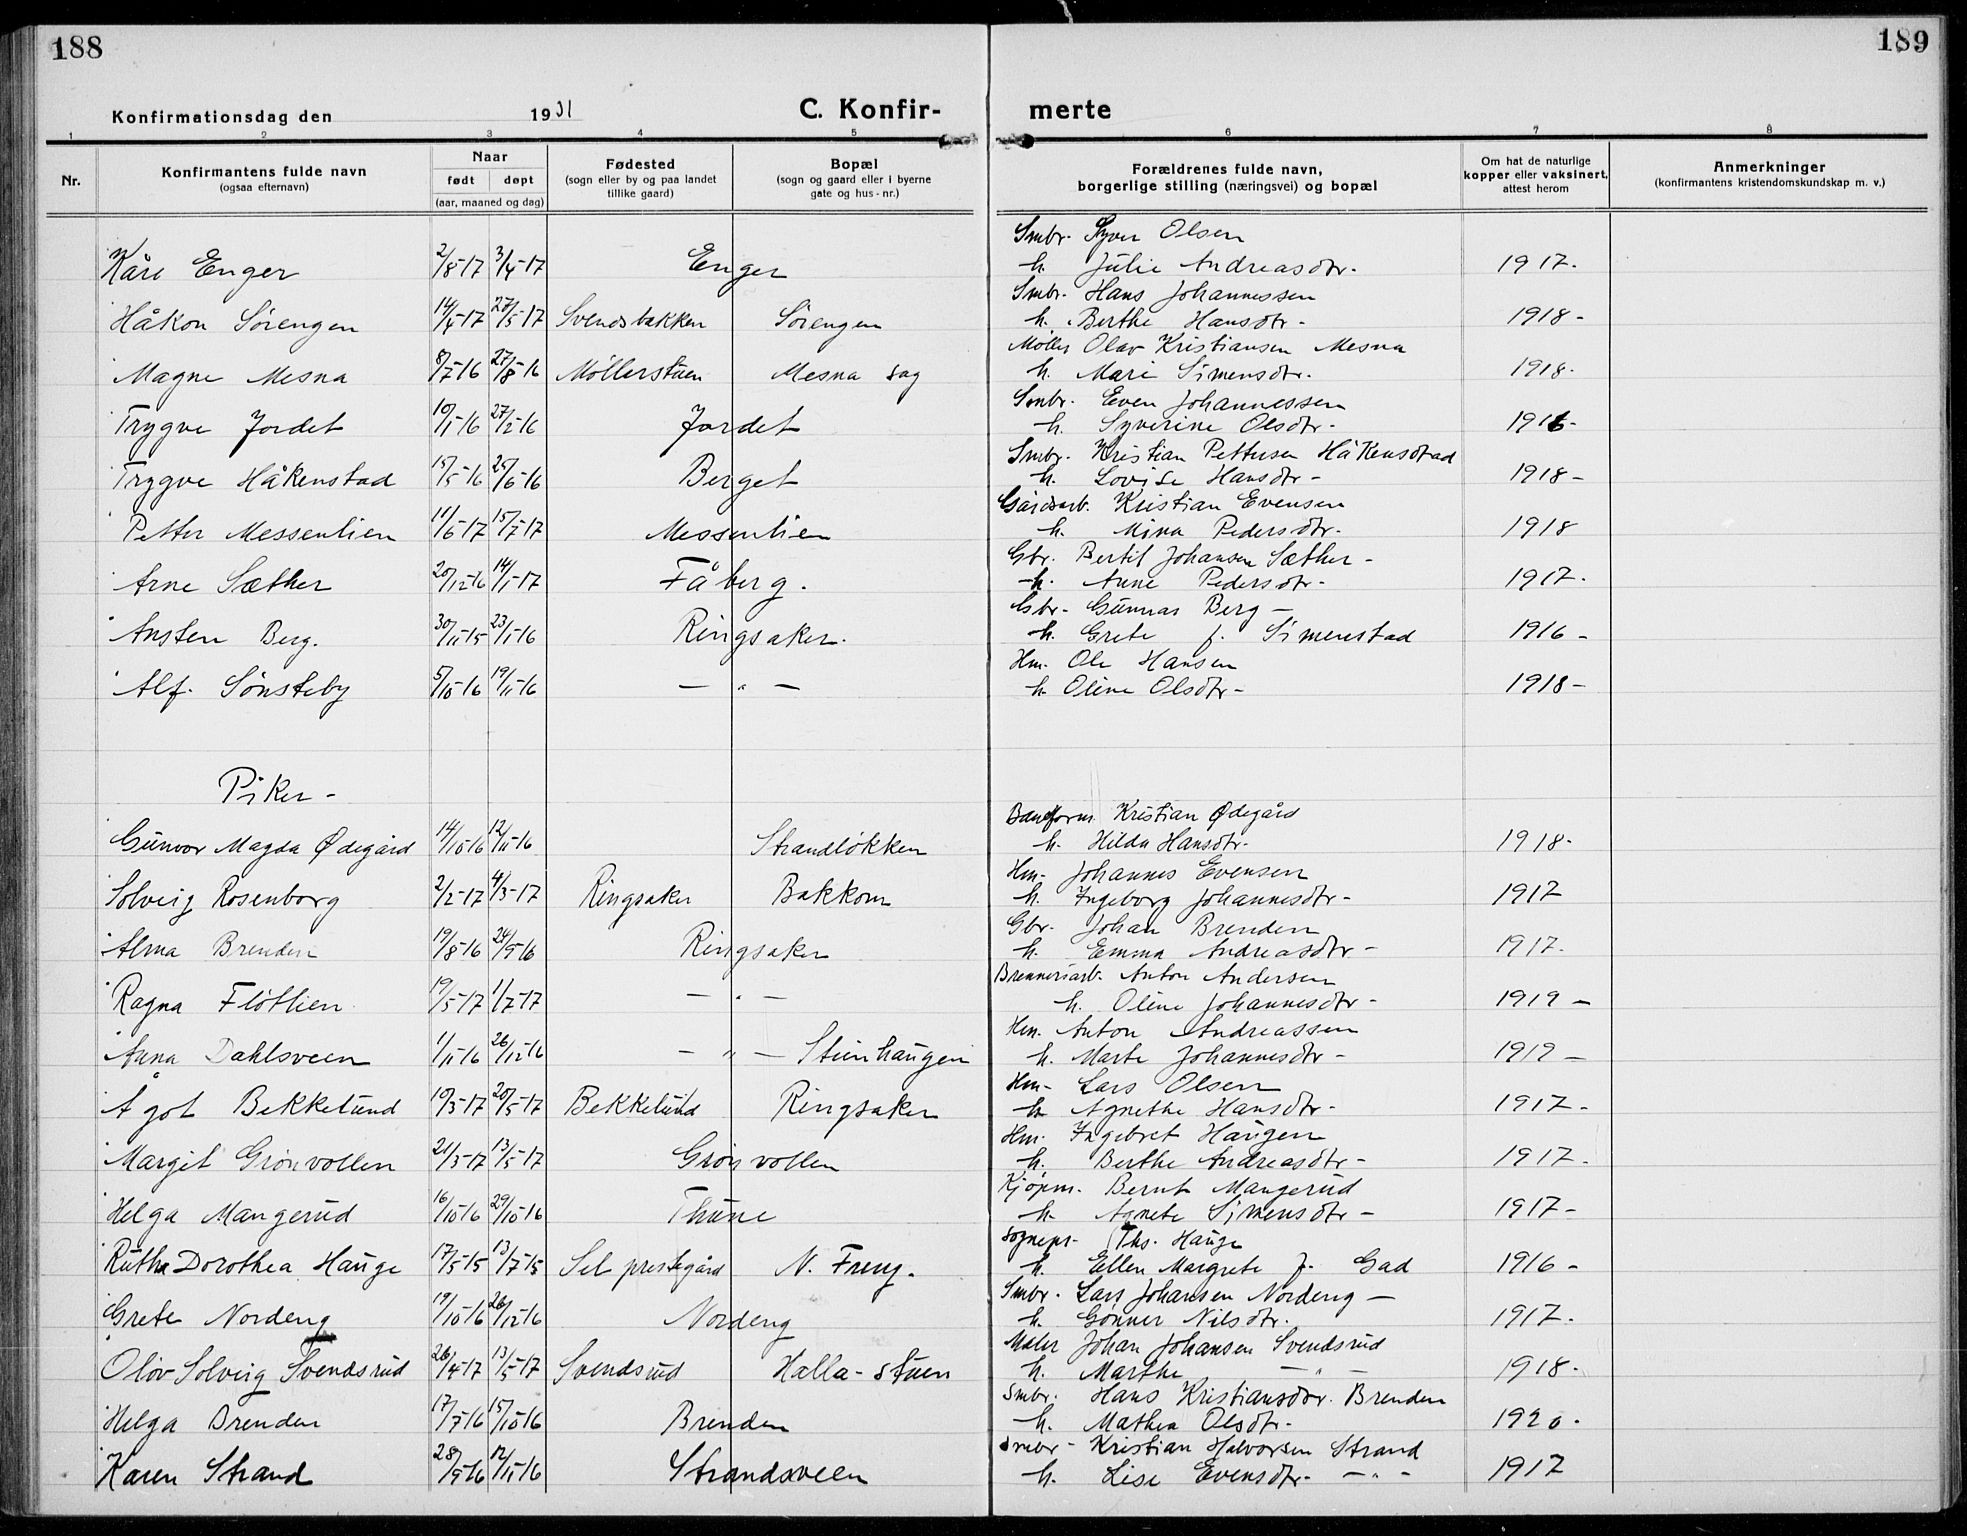 188
189
Konfirmationsdag den 1931
C. Konfir-
merte
1 2 3 4 5 6 7 8
Nr.
Konfirmantens fulde navn
(ogsaa efternavn)
Naar
født døpt
(aar, maaned og dag)
Fødested
(sogn eller by og paa landet
tillike gaard)
Bopæl
(sogn og gaard eller i byerne
gate og hus-nr.)
Forældrenes fulde navn,
borgerlige stilling (næringsvei) og bopæl
Om hat de naturlige
kopper eller vaksinert,
attest herom
Anmerkninger
(konfirmantens kristendomskundskap m. v.)
Smbr. Syver Olsen
Kåre Enger 2/8-17 3/4-17 Enger h. Julie Andreasdtr. 1917.
Smbr. Hans Johannessen
Håkon Sørengen 14/4-17 27/5-17 Svendsbakken Sørengen h. Berthe Hansdtr - 1918-
Møller Olav Kristiansen Mesna
Magne Mesna 8/7-16 27/8-16 Møllerstuen Mesna sag h. Mari Simensdtr. 1918.
Smbr. Even Johannessen
Trygve Jordet 10/1-16 27/2-16 Jordet h. Syverine Olsdtr- 1916-
Smbr. Kristian Pettersen Håkenstad
Trygve Håkenstad 15/5-16 25/6-16 Berget h. Lovise Hansdtr - 1918-
Gårdsarb. Kristian Evensen
Petter Messenlien 11/6-17 15/7-17 Messenlien h. Mina Pedersdtr. 1918
Gbr. Bertil Johansen Sæther -
Arne Sæther 20/12-16 14/1-17 Fåberg. h. Anne Pedersdtr- 1917.
Gbr- Gunnar Berg -
Austen Berg. 30/11-15 23/1-16 Ringsaker. h. Grete f. Simenstad 1916-
Hm. Ole Hansen
Alf. Sønsteby 5/10-16 19/11-16 - " - h. Oline Olsdtr- 1918-
Piker-
Kristian Ødegård
Gunvor Magda Ødegård 14/10-16 12/11-16 Strandløkken h. Hilda Hansdtr- 1918-
Hm- Johannes Evensen
Solveig Rosenborg 2/2-17 4/3-17 Ringsaker Bakkom h. Ingeborg Johannesdtr- 1917
Gbr. Johan Brenden
Alma Brenden 19/8-16 24/9-16 Ringsaker h. Emma Andreasdtr - 1917.
Brenneriarb. Anton Andersen
Ragna Fløtlien 19/5-17 1/7-17 - " - h. Oline Johannesdtr - 1919 -
Hm. Anton Andreassen
Anna Dahlsveen 1/11-16 26/12-16 - " - Stenhaugen h. Marte Johannesdtr - 1919 -
Hm- Lars Olsen
Ågot Bekkelund 10/3-17 20/5-17 Bekkelund Ringsaker h Agnethe Hansdtr- 1917-
Hm. Ingebret Haugen
Margit Grønvollen 21/3-17 13/5-17 Grønvollen h. Berthe Andreasdtr - 1917-
Kjøpm. Bernt Mangerud
Helga Mangerud 16/10-16 29/10-16 Thune h. Agnete Simensdtr - 1917-
Sognepr- Ths. Hauge
Ruth Dorothea Hauge 17/5-15 13/7-15 Sel prestegård N. Freng. h. Ellen Margrete f. Gad 1916-
Smbr. Lars Johansen Nordeng -
Grete Nordeng 19/10-16 26/12-16 Nordeng h. Gønner Nilsdtr. 1917.
Maler Johan Johansen Svendsrud
Oløv Solveig Svendsrud 26/4-17 13/5-17 Svendsrud Halla-stuen h. Marthe - " - 1918-
Smbr. Hans Kristiansdtr. Brenden
Helga Brenden 17/7-16 15/10-16 Brenden h. Mathea Olsdtr- 1920.
Smbr - Kristian Halvorsen Strand
Karen Strand 28/9-16 12/11-16 Strandsveen h. Lise Evensdtr- - " - 1917